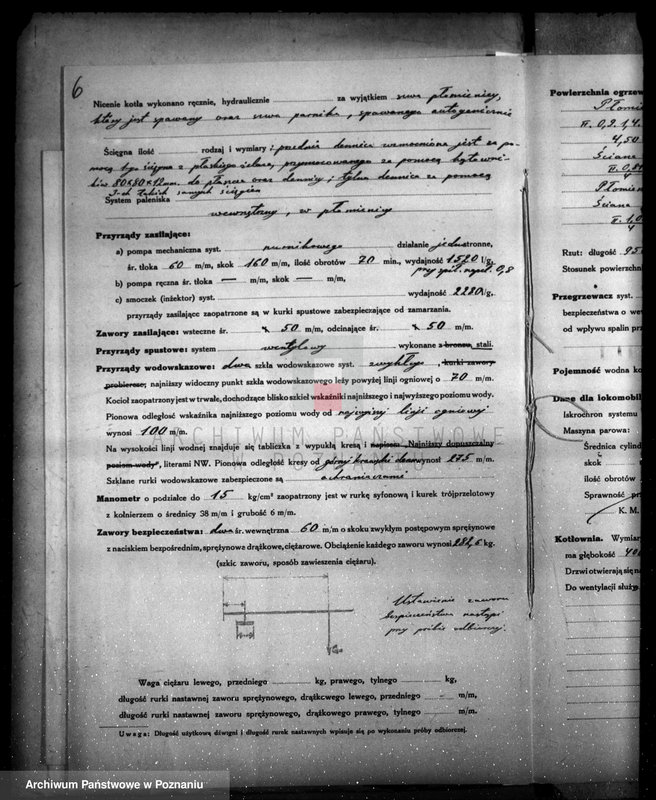 6
Nicenie kotła wykonano ręcznie, hydraulicznie za wyjątkiem szwa płomienicy,
który jest spawany oraz szwa parnika, spawanego autogenicznie
Ścięgna ilość rodzaj i wymiary: przednia dennica wzmocniona jest za po-
mocą ścięgna z płaskiego żelaza, przymocowanego za pomocą kątowni-
ków 80x80x12 mm. do płaszcza oraz dennicy; tylna dennica za pomocą
3-ch takich samych ścięgien
System paleniska
wewnętrzny, w płomienicy
Przyrządy zasilające:
a) pompa mechaniczna syst. nurnikowego działanie jednostronne,
śr. tłoka 60 m/m, skok 160 m/m, ilość obrotów 70 min., wydajność 1520 l/g,
przy spół. napeł. 0,8
b) pompa ręczna śr. tłoka — m/m, skok — m/m,
c) smoczek (inżektor) syst. wydajność 2280 l/g.
przyrządy zasilające zaopatrzone są w kurki spustowe zabezpieczające od zamarzania.
Zawory zasilające: wsteczne śr. 50 m/m, odcinające śr. 50 m/m.
Przyrządy spustowe: system wentylowy wykonane z bronzu, stali.
Przyrządy wodowskazowe: dwa szkła wodowskazowe syst. zwykłego, kurki zawory
probiercze, najniższy widoczny punkt szkła wodowskazowego leży powyżej linji ogniowej o 70 m/m.
Kocioł zaopatrzony jest w trwałe, dochodzące blisko szkieł wskaźniki najniższego i najwyższego poziomu wody.
Pionowa odległość wskaźnika najniższego poziomu wody od najwyższej linji ogniowej
wynosi 100 m/m.
Na wysokości linji wodnej znajduje się tabliczka z wypukłą kresą i napisem „Najniższy dopuszczalny
poziom wody", literami NW. Pionowa odległość kresy od górnej krawędzi wynosi 275 m/m.
Szklane rurki wodowskazowe zabezpieczone są ochraniaczami
Manometr o podziałce do 15 kg/cm² zaopatrzony jest w rurkę syfonową i kurek trójprzelotowy
z kołnierzem o średnicy 38 m/m i grubość 6 m/m.
Zawory bezpieczeństwa: dwa śr. wewnętrzna 60 m/m o skoku zwykłym postępowym sprężynowe
z naciskiem bezpośrednim, sprężynowe drążkowe, ciężarowe. Obciążenie każdego zaworu wynosi 282,6 kg.
(szkic zaworu, sposób zawieszenia ciężaru).
Ustawienie zaworu
bezpieczeństwa nastąpi
przy próbie odbiorczej.
Waga ciężaru lewego, przedniego kg, prawego, tylnego kg,
długość rurki nastawnej zaworu sprężynowego, drążkowego lewego, przedniego m/m,
długość rurki nastawnej zaworu sprężynowego, drążkowego prawego, tylnego m/m.
Uwaga: Długość użytkową dźwigni i długość rurek nastawnych wpisuje się po wykonaniu próby odbiorczej.
ARCHIWUM PAŃSTWOWE
W POZNANIU
Powierzchnia ogrzew
Płomie
4,50
Ściana
Płomie
Ściana
Rzut: długość 95
Stosunek powierzchni
Przegrzewacz syst.
bezpieczeństwa o we
od wpływu spalin prz
Pojemność wodna ko
Dane dla lokomobil
Iskrochron systemu
Maszyna parowa:
Średnica cylind
skok
ilość obrotów
Sprawność prz
K. M.
Kotłownia. Wymiar
ma głębokość 400
Drzwi otwierają się na
Do wentylacji służy
Archiwum Państwowe w Poznaniu